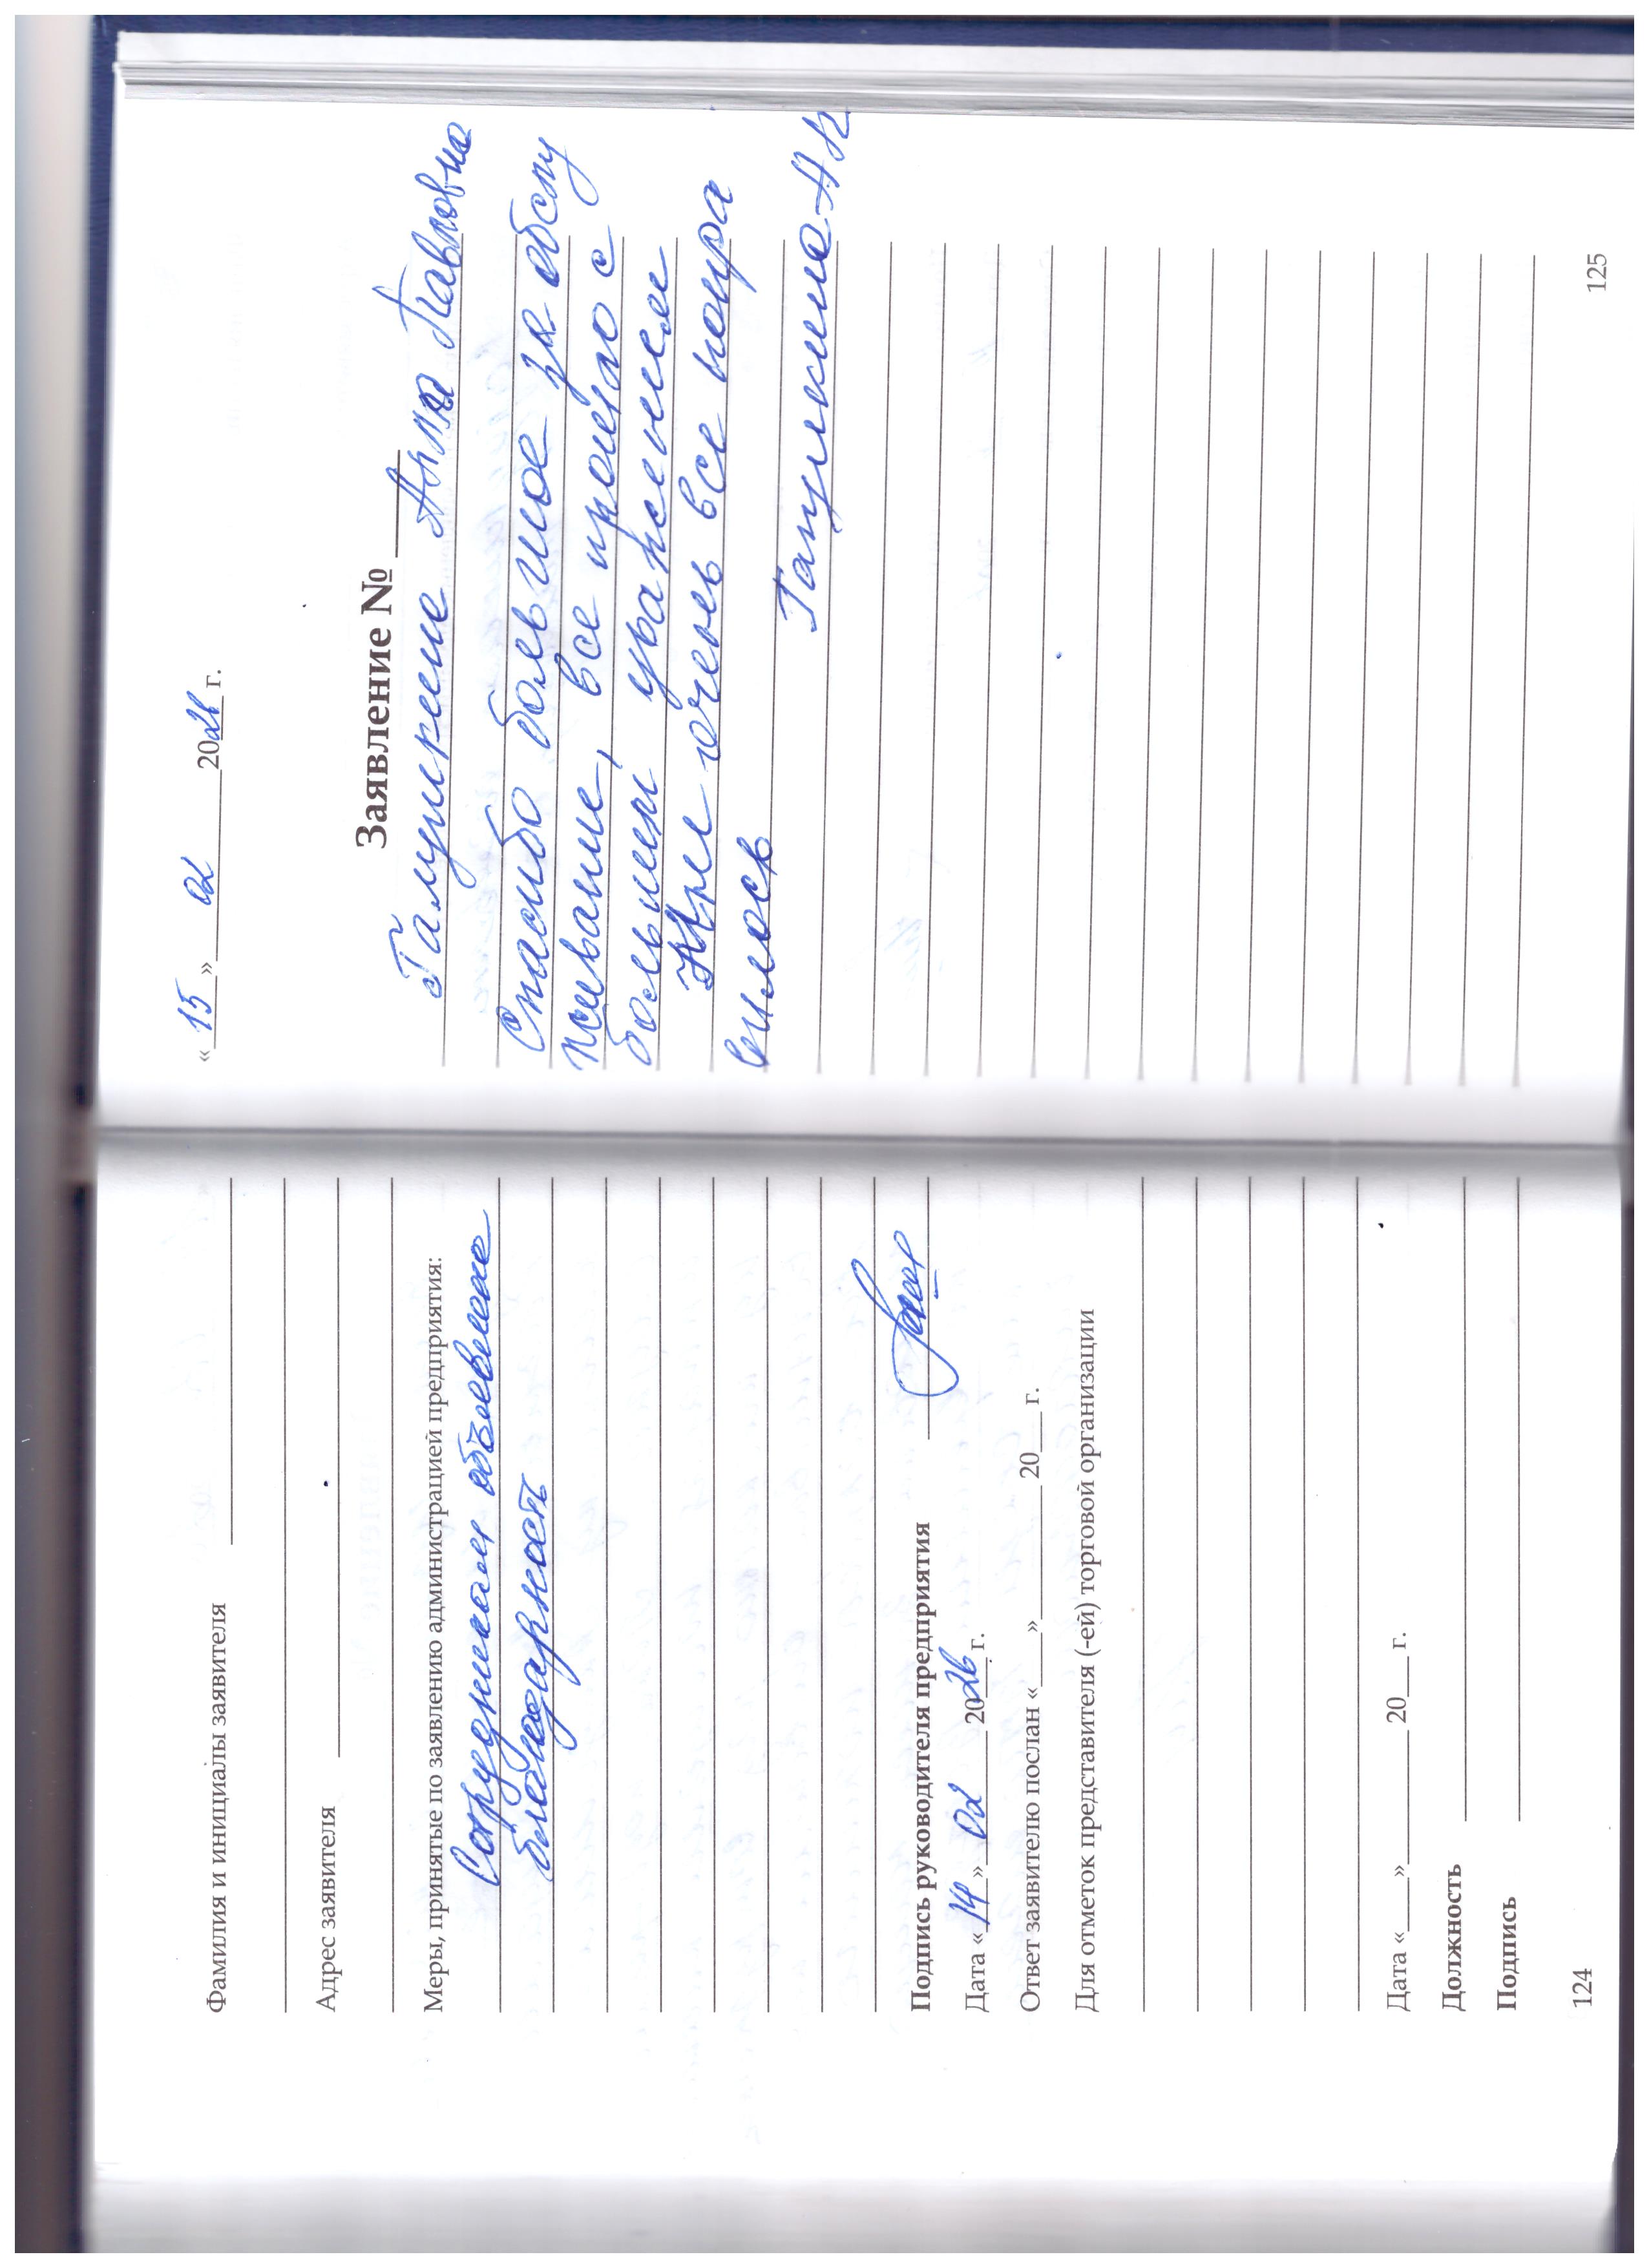 Фамилия и инициалы заявителя
Адрес заявителя
Меры, принятые по заявлению администрацией предприятия:
Сотрудникам объявлена
благодарность
Подпись руководителя предприятия
Дата « 14 » 02 2026 г.
Ответ заявителю послан «___» ______ 20___ г.
Для отметок представителя (-ей) торговой организации
Дата «___» ______ 20___ г.
Должность
Подпись
124
« 15 » 02 2026 г.
Заявление № ___
Анна Павловна
Спасибо большое за обслу
живание, все прошло с
большим уважением
Мне очень все понра
вилось
125